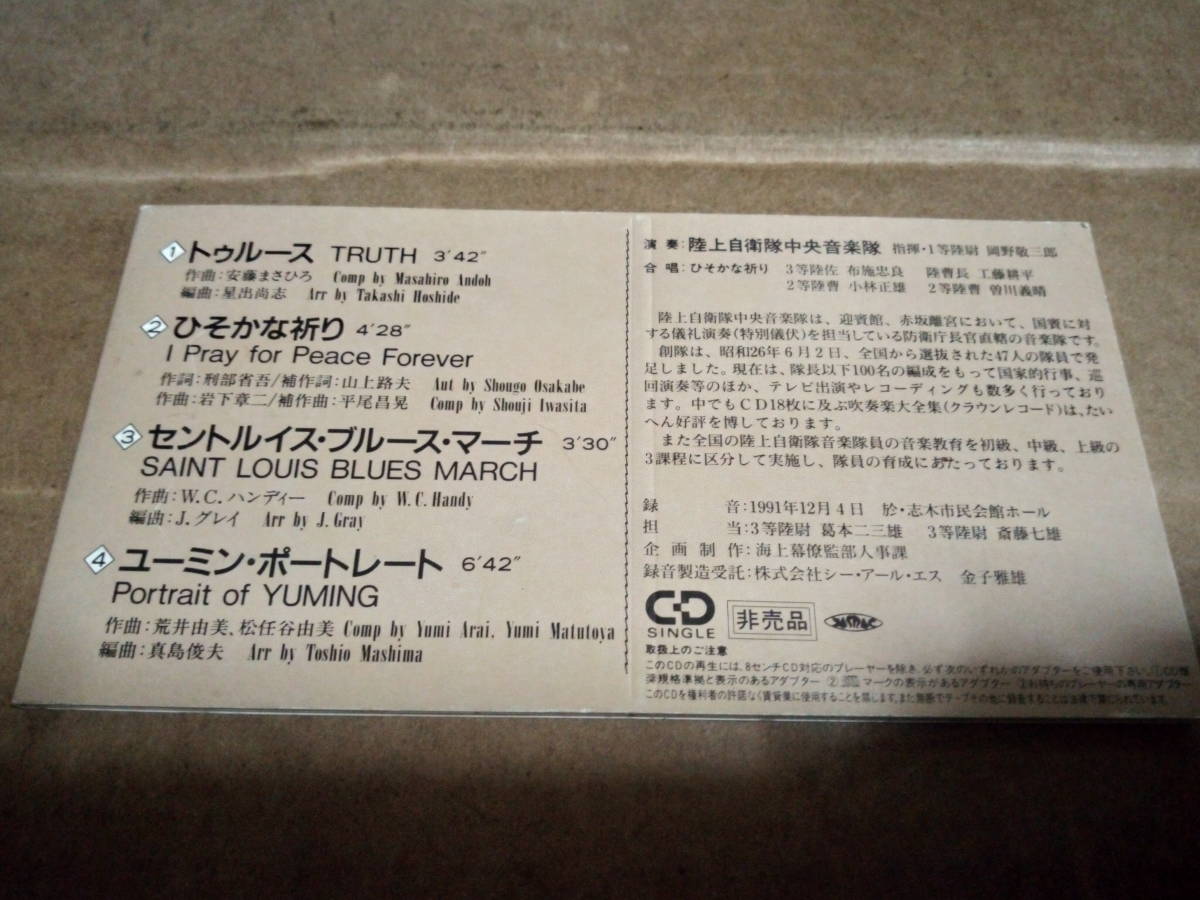 1 トゥルース TRUTH 3'42"
作曲:安藤まさひろ Comp by Masahiro Andoh
編曲:星出尚志 Arr by Takashi Hoshide
2 ひそかな祈り 4'28"
I Pray for Peace Forever
作詞:刑部省吾/補作詞:山上路夫 Aut by Shougo Osakabe
作曲:岩下章二/補作曲:平尾昌晃 Comp by Shouji Iwasita
3 セントルイス・ブルース・マーチ 3'30"
SAINT LOUIS BLUES MARCH
作曲:W.C.ハンディー Comp by W.C.Handy
編曲:J.グレイ Arr by J.Gray
4 ユーミン・ポートレート 6'42"
Portrait of YUMING
作曲:荒井由美、松任谷由美 Comp by Yumi Arai, Yumi Matutoya
編曲:真島俊夫 Arr by Toshio Mashima
演奏:陸上自衛隊中央音楽隊 指揮・1等陸尉 岡野敬三郎
合唱:ひそかな祈り 3等陸佐 布施忠良 陸曹長 工藤耕平
2等陸曹 小林正雄 2等陸曹 曽川義晴
陸上自衛隊中央音楽隊は、迎賓館、赤坂離宮において、国賓に対
する儀礼演奏(特別儀伏)を担当している防衛庁長官直轄の音楽隊です。
創隊は、昭和26年6月2日、全国から選抜された47人の隊員で発
足しました。現在は、隊長以下100名の編成をもって国家的行事、巡
回演奏等のほか、テレビ出演やレコーディングも数多く行っており
ます。中でもCD18枚に及ぶ吹奏楽大全集(クラウンレコード)は、たい
へん好評を博しております。
また全国の陸上自衛隊音楽隊員の音楽教育を初級、中級、上級の
3課程に区分して実施し、隊員の育成にあたっております。
録音:1991年12月4日 於・志木市民会館ホール
担当:3等陸尉 葛本二三雄 3等陸尉 斎藤七雄
企画制作:海上幕僚監部人事課
録音製造受託:株式会社シー・アール・エス 金子雅雄
CD SINGLE 非売品
取扱上のご注意
このCDの再生には、8センチCD対応のプレーヤーを除き、必ず次のいずれかのアダプターをご使用下さい。①CD標
準規格準拠と表示のあるアダプター ② マークの表示があるアダプター ③お持ちのプレーヤーの専用アダプター
このCDを権利者の許諾なく賃貸業に使用することを禁じます。また無断でテープその他に録音することは法律で禁じられています。